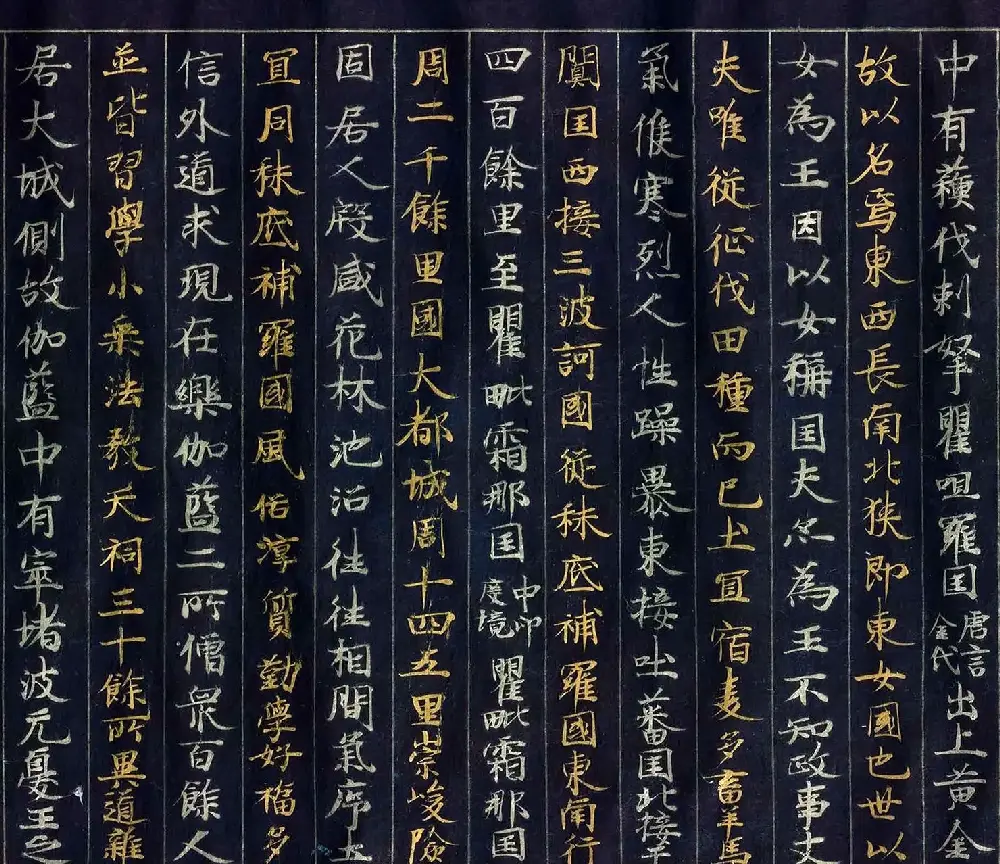 中有蘓伐剌拏瞿呾羅国唐言金代出上黄金
故以名焉東西長南北狹即東女國也世以
女為王因以女稱国夫亦為王不知政事丈
夫唯従征伐田種而已土冝宿麦多畜羊馬
氣候寒烈人性躁暴東接吐蕃国北接于
闐国西接三波訶國従秣底補羅國東南行
四百餘里至瞿毗霜那国中印度境瞿毗霜那国
周二千餘里國大都城周十四五里崇峻險
固居人殷盛花林池沼往往相間氣序土
冝同秣底補羅國風俗淳質勤學好福多
信外道求現在樂伽藍二所僧衆百餘人
並皆習學小乗法教天祠三十餘所異道雜
居大城側故伽藍中有窣堵波无憂王之